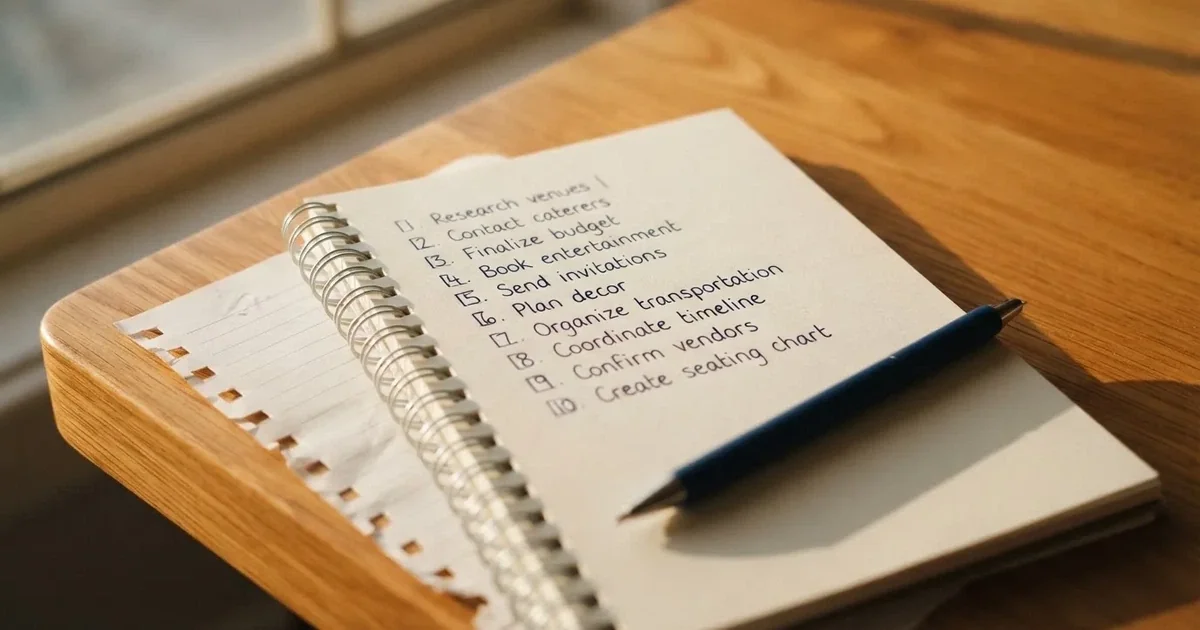 1. Research venues
2. Contact caterers
3. Finalize budget
4. Book entertainment
5. Send invitations
6. Plan decor
7. Organize transportation
8. Coordinate timeline
9. Confirm vendors
10. Create seating chart